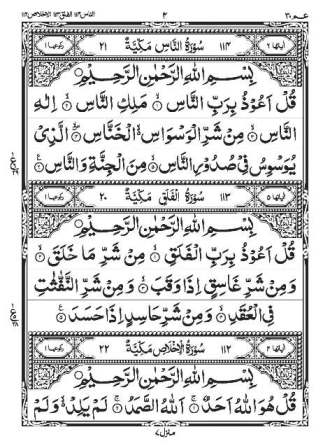 عم ٣٠ ٢ الناس ١١٤ الفلق ١١٣ الاخلاص ١١٢
اٰیاتہا ٦ ١١٤ سُوۡرَةُ النَّاسِ مَكِّيَّةٌ ٢١ رکوعہا ١
بِسۡمِ اللهِ الرَّحۡمٰنِ الرَّحِيۡمِ
قُلۡ اَعُوۡذُ بِرَبِّ النَّاسِۙ‏ ۝١ مَلِكِ النَّاسِۙ‏ ۝٢ اِلٰهِ
النَّاسِۙ‏ ۝٣ مِنۡ شَرِّ الۡوَسۡوَاسِ الۡخَـنَّاسِۙ‏ ۝٤ الَّذِىۡ
يُوَسۡوِسُ فِىۡ صُدُوۡرِ النَّاسِۙ‏ ۝٥ مِنَ الۡجِنَّةِ وَالنَّاسِ ۝٦
اٰیاتہا ٥ ١١٣ سُوۡرَةُ الۡفَلَقِ مَكِّيَّةٌ ٢٠ رکوعہا ١
بِسۡمِ اللهِ الرَّحۡمٰنِ الرَّحِيۡمِ
قُلۡ اَعُوۡذُ بِرَبِّ الۡفَلَقِۙ‏ ۝١ مِنۡ شَرِّ مَا خَلَقَۙ‏ ۝٢
وَمِنۡ شَرِّ غَاسِقٍ اِذَا وَقَبَۙ‏ ۝٣ وَمِنۡ شَرِّ النَّفّٰثٰتِ
فِى الۡعُقَدِۙ‏ ۝٤ وَمِنۡ شَرِّ حَاسِدٍ اِذَا حَسَدَ ۝٥
اٰیاتہا ٤ ١١٢ سُوۡرَةُ الۡاِخۡلَاصِ مَكِّيَّةٌ ٢٢ رکوعہا ١
بِسۡمِ اللهِ الرَّحۡمٰنِ الرَّحِيۡمِ
قُلۡ هُوَ اللهُ اَحَدٌۚ‏ ۝١ اَللهُ الصَّمَدُۚ‏ ۝٢ لَمۡ يَلِدۡۙ وَلَمۡ
منزل ٧